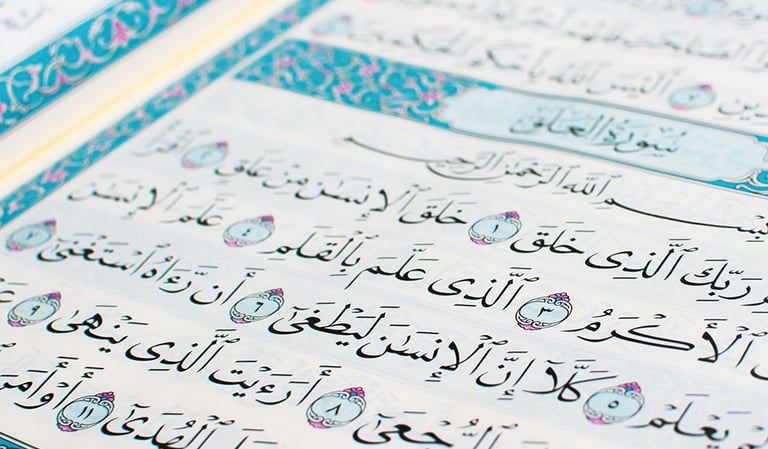 أَلَيْسَ ٱللَّهُ بِأَحْكَمِ ٱلْحَٰكِمِينَ
سُورَةُ العَلَقِ
بِسْمِ ٱللَّهِ ٱلرَّحْمَٰنِ ٱلرَّحِيمِ
رَبِّكَ ٱلَّذِى خَلَقَ ١ خَلَقَ ٱلْإِنسَٰنَ مِنْ عَلَقٍ ٢ ٱقْرَأْ
ٱلْأَكْرَمُ ٣ ٱلَّذِى عَلَّمَ بِٱلْقَلَمِ ٤ عَلَّمَ ٱلْإِنسَٰنَ
لَمْ يَعْلَمْ ٥ كَلَّآ إِنَّ ٱلْإِنسَٰنَ لَيَطْغَىٰٓ ٦ أَن رَّءَاهُ ٱسْتَغْنَىٰٓ ٧
ٱلرُّجْعَىٰٓ ٨ أَرَءَيْتَ ٱلَّذِى يَنْهَىٰ ٩
عَلَى ٱلْهُدَىٰٓ ١١ أَوْ أَمَرَ